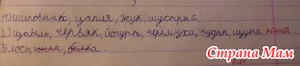 1) шиповник, цапля, жук, шустрый.
2) щавель, червяк, йогурт, черёмуха, чудак, щука, каша.
3) лось, юнга, белка.
Страна Мам